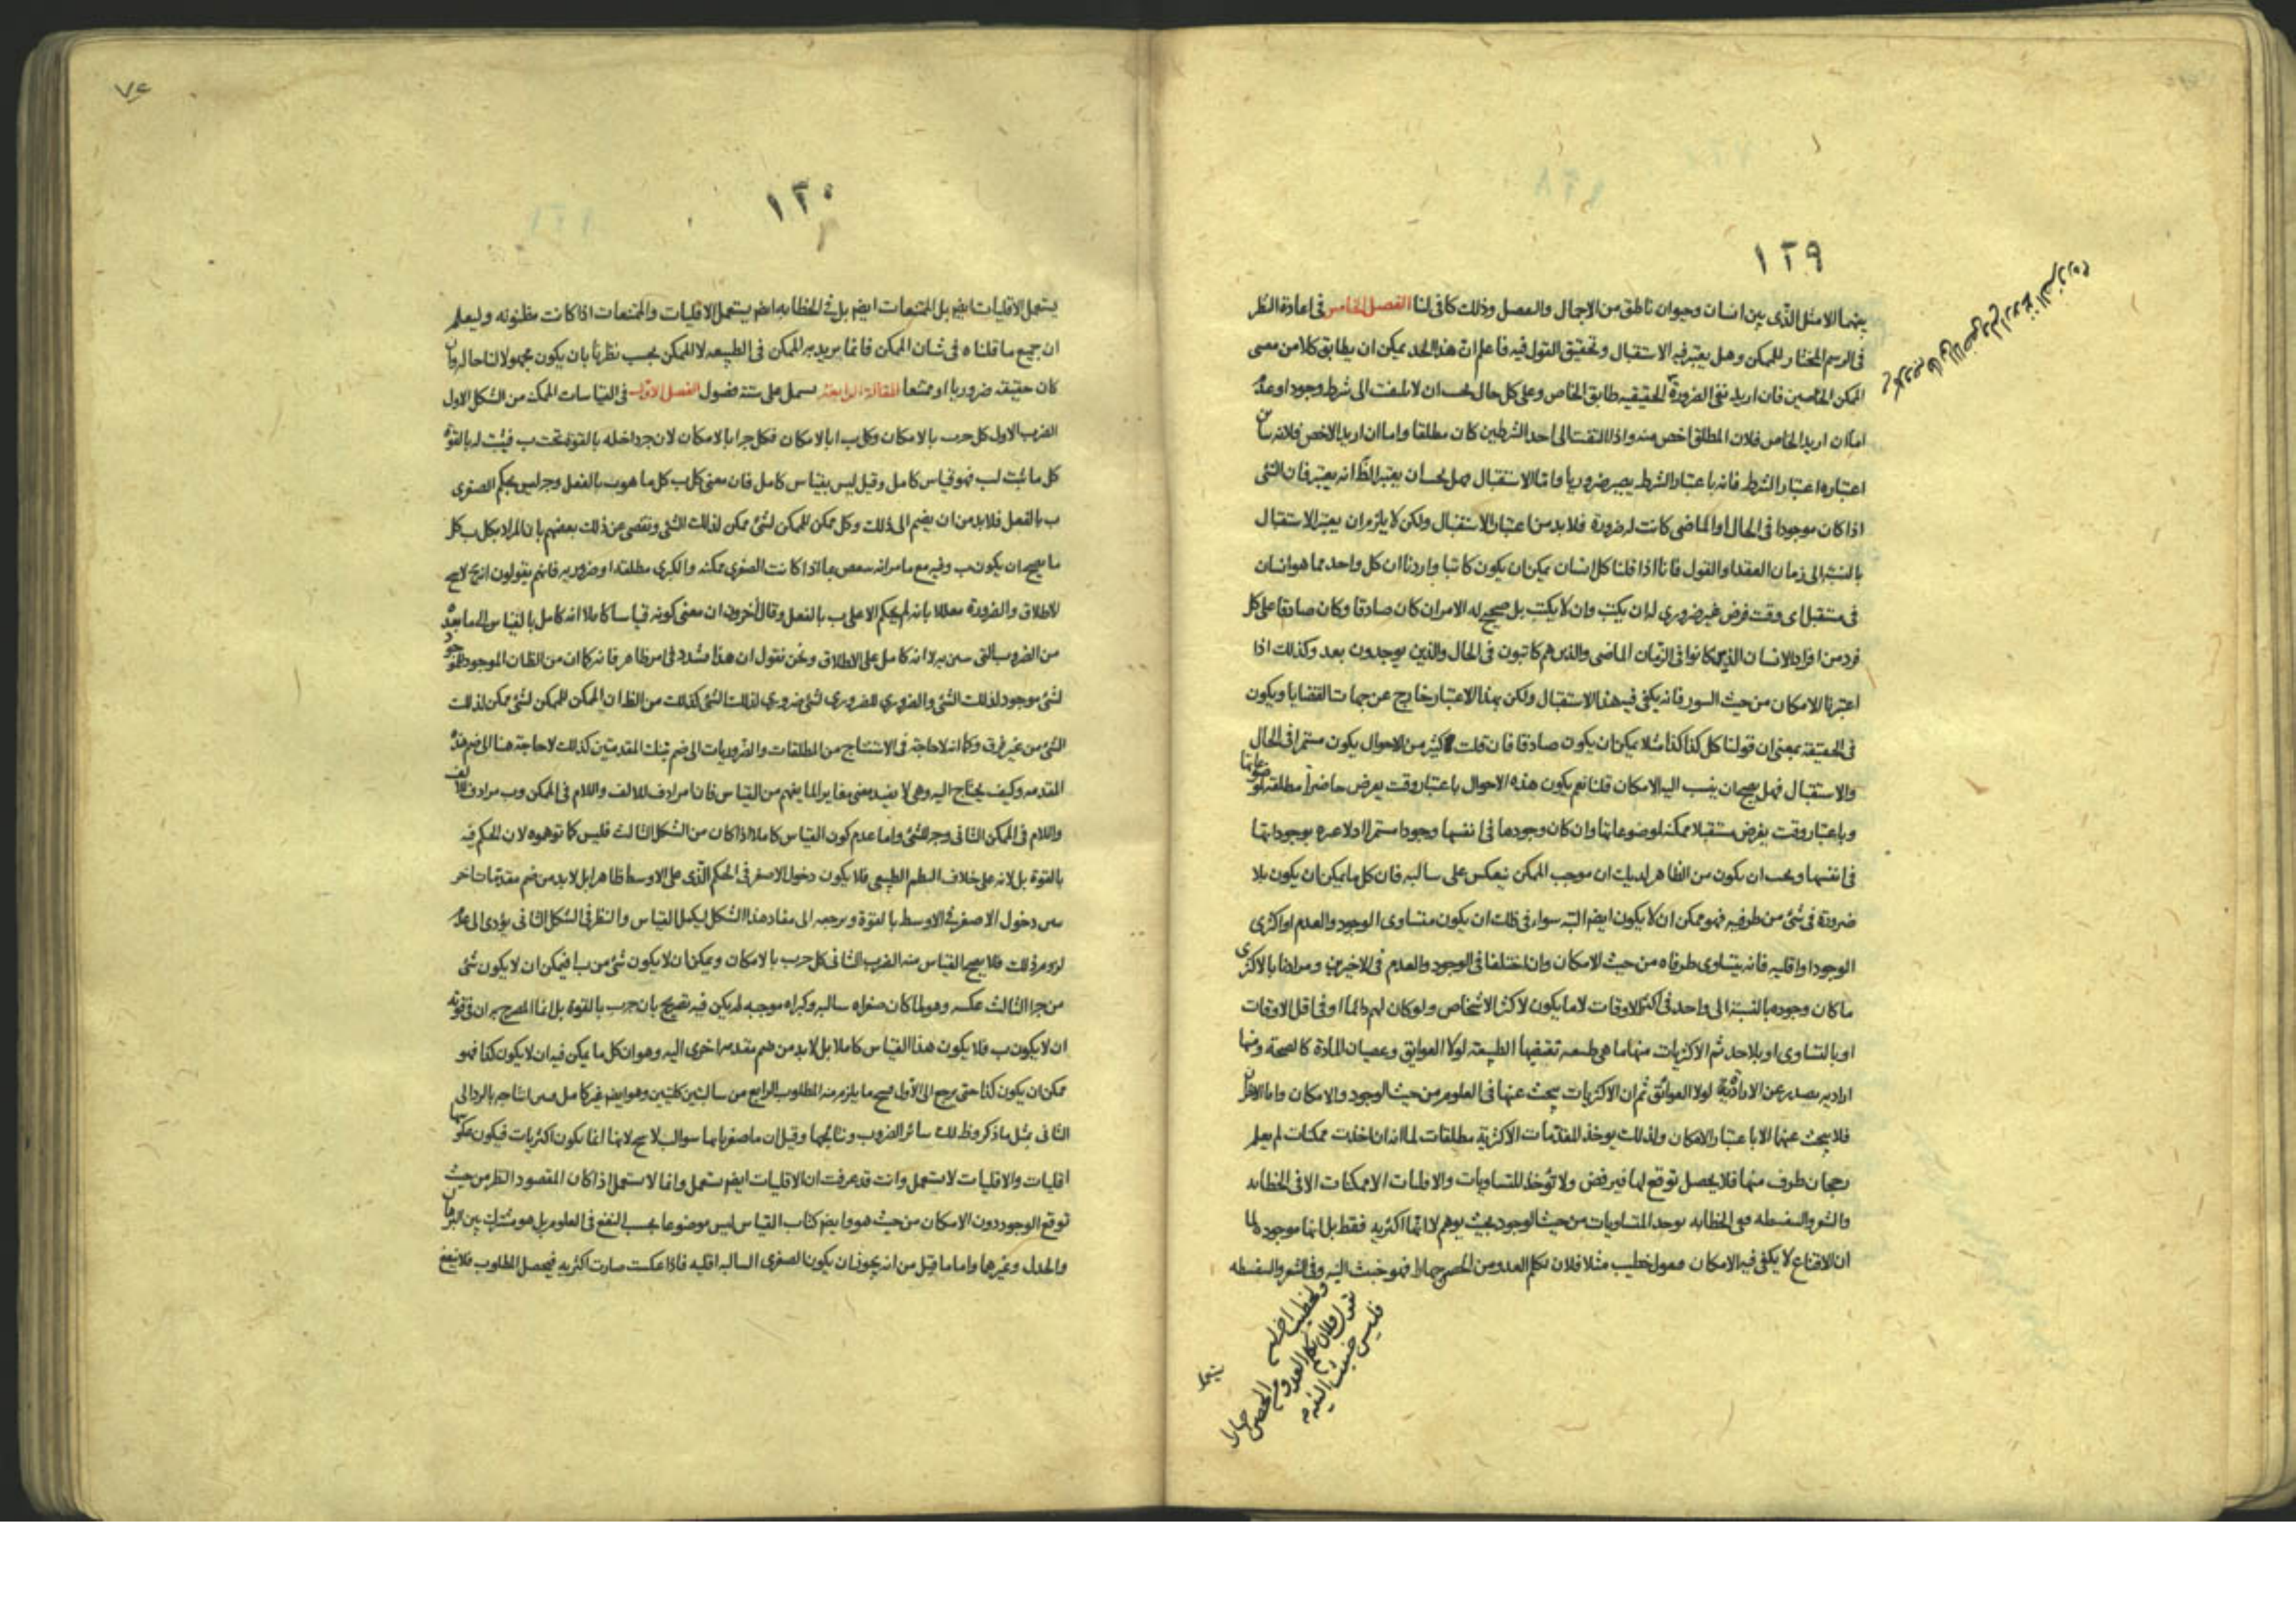 ١٢٩
بينهما الا مثل الذى بين انسان وحيوان ناطق من الاجمال والفصل وذلك كاف لنا الفصل الخامس فى اعادة النظر
فى الرسم المختار للممكن وهل يعتبر فيه الاستقبال وتحقيق القول فيه فاعلم ان هذا الحد يمكن ان يطابق كلا من معنى
الممكن الخاصين فان اريد نفى الضرورة الحقيقيه طابق الخاص وعلى كل حال يجب ان لا يلتفت الى شرط وجود او عدم
اما ان اريد الخاص فلان المطلق اخص منه واذا التفت الى احد الشرطين كان مطلقا واما ان اريد الاخص فلانه
اعتباره اعتبار الشرط فانه باعتبار الشرط يصير ضروريا واما الاستقبال فهل يجب ان يعتبر الظ انه يعتبر فان الشئ
اذا كان موجودا فى الحال او الماضى كانت له ضرورة فلا بد من اعتبار الاستقبال ولكن لا يلزم ان يعتبر الاستقبال
بالنسبة الى زمان العقد او القول فانا اذا قلنا كل انسان يمكن ان يكون كاتبا واردنا ان كل واحد مما هو انسان
فى مستقبل اى وقت فرض غير ضرورى له ان يكتب وان لا يكتب بل صحيح له الامران كان صادقا وكان صادقا على كل
فرد من افراد الانسان الذين كانوا فى الزمان الماضى والذين هم كاتبون فى الحال والذين يوجدون بعد وكذلك اذا
اعتبرنا الامكان من حيث السور فانه يكفى فيه هذا الاستقبال ولكن بهذا الاعتبار خارج عن جهات القضايا ويكون
فى الحقيقة بمعنى ان قولنا كل كذا كذا مثلا يمكن ان يكون صادقا فان قلت كثير من الاحوال يكون مستمرا فى الحال
والاستقبال فهل يصح ان ينسب اليه الامكان قلنا نعم يكون هذه الاحوال باعتبار وقت يعرض حاضرا مطلقة لموضوعاتها
وباعتبار وقت يفرض مستقبلا ممكنة لموضوعاتها وان كان وجودها فى انفسها وجودا مستمرا اذ لا عبرة بوجوداتها
فى انفسها ويجب ان يكون من الظاهر لديك ان موجب الممكن ينعكس على سالبه فان كل ما يمكن ان يكون بلا
ضرورة فى شئ من طرفيه فهو ممكن ان لا يكون ايضا البته سواء فى ذلك ان يكون متساوى الوجود والعدم او اكثرى
الوجود او اقليه فانه يتساوى طرفاه من حيث الامكان وان اختلفا فى الوجود والعدم فى الاخيرين ومرادنا بالاكثرى
ما كان وجوده بالنسبة الى واحد فى اكثر الاوقات لا ما يكون لاكثر الاشخاص ولو كان لهم دائما او فى اقل الاوقات
او بالتساوى او بلا حد ثم الاكثريات منها ما هى طبيعيه تقتضيها الطبيعة لولا العوايق وعصيان المادة كالصحة ومنها
اراديه يصدر عن الارادة لولا العوائق ثم ان الاكثريات يبحث عنها فى العلوم من حيث الوجود والامكان واما الاقل
فلا يبحث عنها الا باعتبار الامكان ولذلك يوخذ المقدمات الاكثرية مطلقات لما انه ان اخذت ممكنات لم يعلم
رجحان طرف منها فلا يحصل توقع لها فيرفض ولا تؤخذ المتساويات والاقليات الا ممكنات الا فى الخطابه
والشعر والسفسطه ففى الخطابه يوخذ المتساويات من حيث الوجود بحيث يوهم لا انها اكثريه فقط بل انها موجوده لما
ان الاقناع لا يكفى فيه الامكان فقول خطيب مثلا فلان تكلم العدو من الحصن جهارا فهو خبيث النية وفى الشعر والسفسطه
تقول فلان تكلم العدو من الحصن جهارا
فليس خبيث النية
١٣٠
يستعمل الاقليات ايضا بل الممتنعات ايضا بل فى الخطابه ايضا يستعمل الاقليات والممتنعات اذا كانت مظنونه وليعلم
ان جميع ما قلناه فى شان الممكن فانما يريد به الممكن فى الطبيعه لا الممكن بحسب نظرنا بان يكون مجهولا لنا حاله وان
كان حقيقته ضروريا او ممتنعا المقالة الرابعة يشتمل على ستة فصول الفصل الاول فى القياسات الممكنه من الشكل الاول
الضرب الاول كل ج ب بالامكان وكل ب ا بالامكان فكل ج ا بالامكان لان ج داخله بالقوة تحت ب فيثبت له بالقوة
كل ما ثبت لب فهو قياس كامل وقيل ليس بقياس كامل فان معنى كل ب كل ما هو ب بالفعل وج ليس بحكم الصغرى
ب بالفعل فلا بد من ان يضم الى ذلك وكل ممكن للممكن لشئ ممكن لذلك الشئ وتفصى عن ذلك بعضهم بان المراد بكل ب كل
ما يصح ان يكون ب وفيه مع ما مر انه ينتقض بما اذا كانت الصغرى ممكنه والكبرى مطلقه او ضروريه فانهم يقولون انه ح لا يصح
للاطلاق والضرورة معللا بانه لم يحكم الا على ب بالفعل وقال آخرون ان معنى كونه قياسا كاملا انه كامل بالقياس الى ما بعده
من الضروب التى سنبين لا انه كامل على الاطلاق ونحن نقول ان هذا تشدد فى امر ظاهر فانه كما ان من الظان الموجود للموجود
لشئ موجود لذلك الشئ والضرورى للضرورى لشئ ضرورى لذلك الشئ كذلك من الظ ان الممكن للممكن لشئ ممكن لذلك
الشئ من غير فرق وكما انه لا حاجة فى الاستنتاج من المطلقات والضروريات الى ضم تينك المقدمتين كذلك لا حاجة هنا الى ضم هذه
المقدمه وكيف يحتاج اليه وهى لا يفيد معنى مغايرا لما يفهم من القياس فان ا مرادف للالف واللام فى الممكن وب مرادف للالف
واللام فى الممكن الثانى وج للشئ واما عدم كون القياس كاملا اذا كان من الشكل الثالث فليس كما توهموه لان الحكم فيه
بالقوة بل لانه على خلاف النظم الطبيعى فلا يكون دخول الاصغر فى الحكم الذى على الاوسط ظاهرا بل لا بد من ضم مقدمات اخر
يبين دخول الاصغر فى الاوسط بالقوة ويرجعه الى مفاد هذا الشكل ليكمل القياس والنظر فى الشكل الثانى يؤدى الى عدم
لزوم ذلك فلا يصح القياس منه الضرب الثانى كل ج ب بالامكان ويمكن ان لا يكون شئ من ب ا فيمكن ان لا يكون شئ
من ج ا الثالث عكسه وهو لما كان صغراه سالبه وكبراه موجبه لم يكن فيه تصريح بان ج ب بالقوة بل انما المصرح به ان فى قوته
ان لا يكون ب فلا يكون هذا القياس كاملا بل لا بد من ضم مقدمه اخرى اليه وهو ان كل ما يمكن فيه ان لا يكون كذا فهو
ممكن ان يكون كذا حتى يرجع الى الاول فيصح ما يلزم منه المطلوب الرابع من سالبتين كليتين وهو ايضا غير كامل يبين انتاجه بالرد الى
الثانى بمثل ما ذكر وظ لك سائر الضروب ونتائجها وقيل ان ما صغرياتها سوالب لا يصح لانها انما يكون اكثريات فيكون
اقليات والاقليات لا تستعمل وانت قد عرفت ان الاقليات ايضا يستعمل وانما لا يستعمل اذا كان المقصود النظر من حيث
توقع الوجود دون الامكان من حيث هو وايضا كتاب القياس ليس موضوعا بحسب النفع فى العلوم بل هو مشترك بين البرهان
والجدل وغيرها واما ما قيل من انه يجوز ان يكون الصغرى السالبه اقليه فاذا عكست صارت اكثريه فيحصل المطلوب فلا ينفع